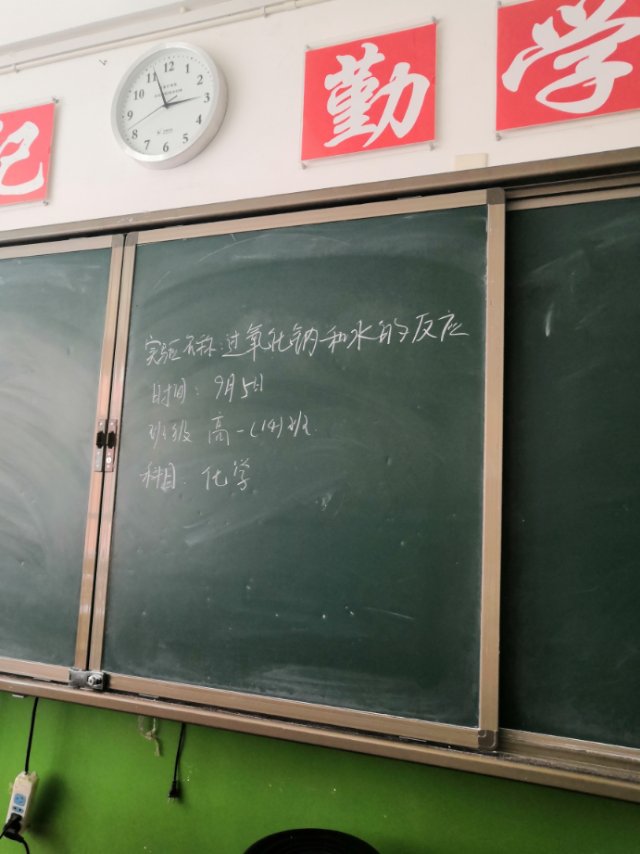 记
勤
学
12
1
2
3
4
5
6
7
8
9
10
11
实验名称:过氧化钠和水的反应
时间: 9月5日
班级 高一(14)班
科目: 化学